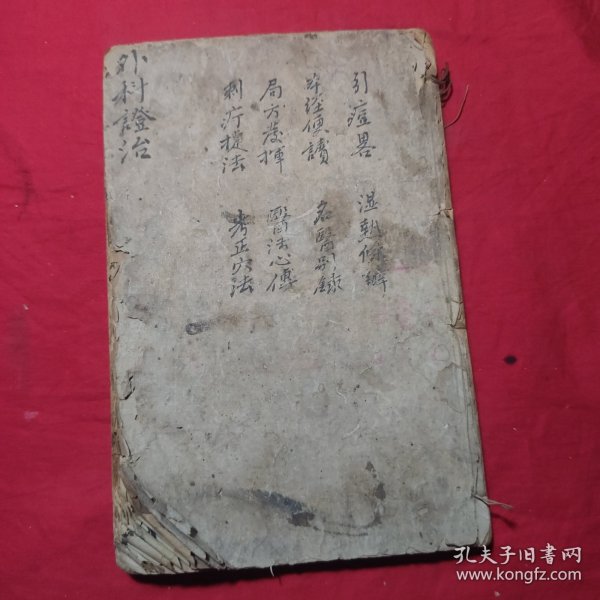 外科證治
引痘畧
濕熱條辨
本經便讀
名醫別錄
局方發揮
醫法心傳
刺疔捷法
考正穴法
孔夫子旧书网
www.kongfz.com